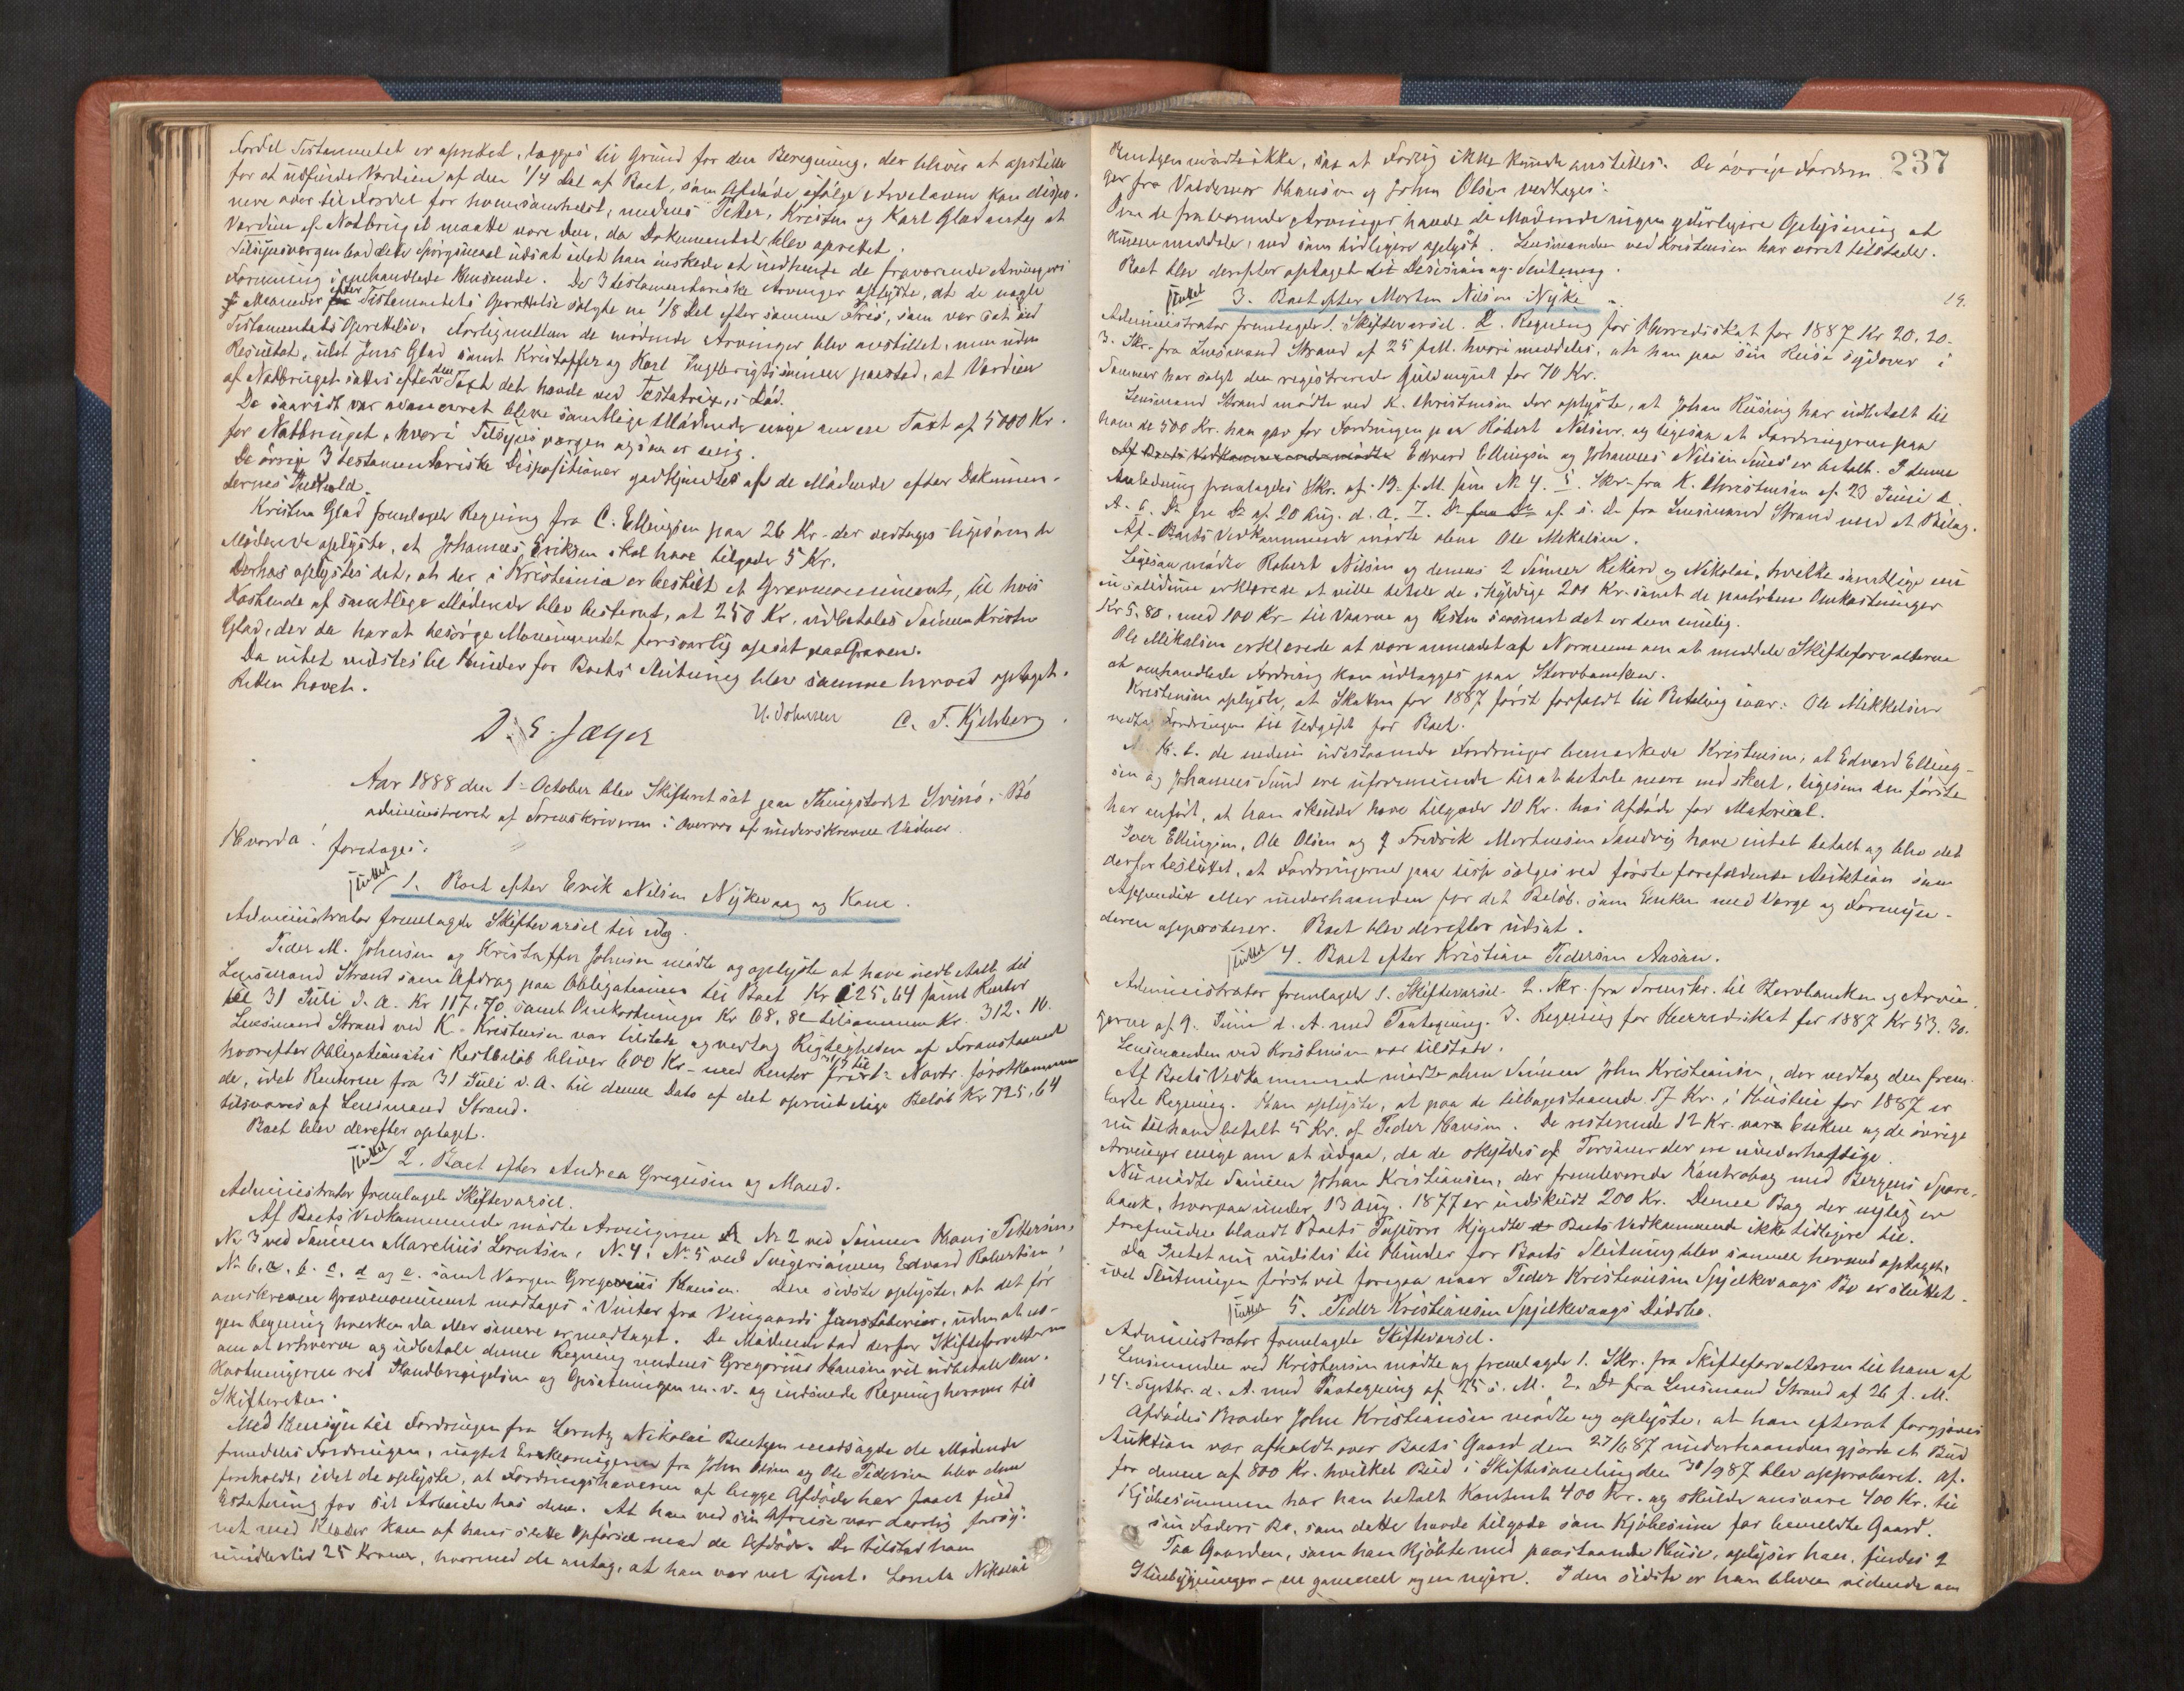 fordel Testamentet er oprettet, lægges til Grund for den Beregning, der bliver at opstille
for at udfinde Værdien af den 1/4 Del af Boet, som Afdøde ifølge Arveloven kan dispo-
nere over til Fordel for hvemsomhelst, medens Peter, Kristen og Karl Glad antog at
Værdien af Notbruget maatte være den, da Dokumentet blev oprettet.
Tilsynsværgen bad dette Spørgsmaal udsat idet han ønskede at indhente de fraværende Arvingers
Formening i omhandlede Henseende. De 3 testamentariske Arvinger oplyste, at de nogle
Maaneder efter Testamentets Oprettelse solgte en 1/8 Del efter samme Pris, som var sat ved
Testamentets Oprettelse. Forlig mellem de mødende Arvinger blev anstillet, men uden
Resultat, idet Jens Glad samt Kristoffer og Karl Ingebrigtsønner paastod, at Værdien
af Notbruget sattes efter den Taxt det havde ved Testatrix's Død.
Da saavidt var avanceret bleve samtlige Mødende enige om en Taxt af 5000 Kr.
for Notbruget, hvori Tilsynsværgen ogsaa er enig.
De øvrige 3 testamentariske Dispositioner godkjendtes af de Mødende efter Dokumen-
ternes Indhold.
Kristen Glad fremlagde Regning fra C. Ellingsen paa 26 Kr. der vedtages ligesom de
Mødende oplyste, at Johannes Eriksen skal have tilgode 5 Kr.
Derhos oplystes det, at der i Kristiania er bestilt et Gravmonument, til hvis
Bekostende af samtlige Mødende blev besternt, at 250 Kr. udbetales Sønnen Kristen
Glad, der da har at besørge Monumentet forsvarlig opsat paa Graven.
Da intet vidstes til Hinder for Boets Slutning blev samme herved optaget.
Retten hævet.
D. S. Jæger
H. Johnsen C. F. Kjelsberg.
Aar 1888 den 1ste October blev Skifteret sat paa Thingstedet Svinø i Bø
administreret af Sorenskriveren i Overvær af underskrevne Vidner.
Hvorda! foretages:
sluttet
1. Boet efter Erik Nilsen Nykvaag og Kone.
Administrator fremlagde Skiftevarsel til idag.
Peder M. Johnsen og Kristoffer Johnsen mødte og oplyste at have indbetalt til
Lensmand Strand som Afdrag paa Obligationen til Boet Kr 125,64 samt Renter
til 31 Juli d. A. Kr 117,70, samt Omkostninger Kr 68,82 tilsammen Kr. 312.16.
Lensmand Strand ved K. Kristensen var tilstede og vedtog Rigtigheden af Foranstaaende
hvorefter Obligationens Restbeløb bliver 600 Kr. med Renter fra Novbr. førstkommen
de, idet Renterne fra 31 Juli d. A. til denne Dato af det oprindelige Beløb Kr 725,64
tilsvares af Lensmand Strand.
Boet blev derefter optaget.
sluttet
2. Boet efter Andrea Gregusen og Mand.
Administrator fremlagde Skiftevarsel.
Af Boets Vedkommende mødte Arvingerne No 2 ved Sønnen Hans Pettersen,
No 3 ved Sønnen Marelius Lorentsen, No 4, No 5 ved Svigersønnen Edvard Robertsen,
No 6, a, b, c, d og e, samt Værgen Gregorius Hansen. Den sidste oplyste, at det før
omskrevne Gravmonument modtages i Vinter fra Vingaards Jernstøberier, uden at no-
gen Regning hverken da eller senere er modtaget. De Mødende bad derfor Skifteforvalteren
om at erhverve og udbetale denne Regning medens Gregorius Hansen vil udbetale Om-
kostningerne ved Landbringelsen og Opsætningen m. v. og indsende Regning herover til
Skifteretten.
Med Hensyn til Fordringen fra Lorentz Nikolai Bentzen modsagde de Mødende
fremdeles Fordringen, uagtet Erklæringerne fra John Olsen og Ole Pedersen blev dem
foreholdt, idet de oplyste, at Fordringshaveren af begge Afdøde har faaet fuld
Erstatning for sit Arbeide hos dem. At han ved sin Afreise var daarlig forsy-
net med Klæder kom af hans slette Opførsel mod de Afdøde. De tilstod ham
imidlertid 25 Kroner, hvormed de antog, at han var vel tjent. Lorents Nikolai
237
Bentzen mødte ikke, saa at Forlig ikke kunde anstilles. De øvrige Fordrin-
ger fra Valdemar Hansen og John Olsen vedtages.
Om de fraværende Arvinger havde de Mødende ingen yderligere Oplysning at
kunne meddele, end som tidligere oplyst. Lensmanden ved Kristensen har været tilstede.
Boet blev derefter optaget til Decision og Slutning.
sluttet
3. Boet efter Morten Nilsen Nyke
19.
Administrator fremlagde 1. Skiftevarsel. 2. Regning for Herredsskat for 1887 Kr 20.20.
3. Skr. fra Lensmand Strand af 25 f. M. hvori meddeles, at han paa sin Reise sydover i
Sommer har solgt den registrerede Guldmynt for 70 Kr.
Lensmand Strand mødte ved K. Christensen der oplyste, at Johan Reising har udbetalt til
ham de 500 Kr. han gav for Fordringen paa Robert Nilsen, og ligesaa at Fordringerne paa
Af Boets Vedkommende mødte Edvard Ellingsen og Johannes Nilsen Sund er betalt. I denne
Anledning fremlagdes Skr. af 19. f. M. fra No 4. 5. Skr. fra K. Christensen af 23 Juni d.
A. 6. Do fra Do af 20 Aug. d. A. 7. Do fra Do af s. D. fra Lensmand Strand med et Bilag.
Af Boets Vedkommende mødte alene Ole Mikalsen.
Ligesaa mødte Robert Nilsen og dennes 2 Sønner Rikard og Nikolai, hvilke samtlige en
in solidum erklærede at ville betale de skyldige 200 Kr. samt de paaløbne Omkostninger
Kr 5.80, med 100 Kr. til Vaaren og Resten saasnart det er dem mulig.
Ole Mikalsen erklærede at være anmodet af Normann om at meddele Skifteforvalteren
at omhandlede Fordring kan udlægges paa Stervbo
Kristensen oplyste, at Skatten for 1887 først forfaldt til Betaling iaar. Ole Mikkelsen
vedtog Fordringen til Udgift for Boet.
K. C. de inden udestaaende Fordringer bemærkede Kristensen, at Edvard Elling-
sen og Johannes Sund ere uformuende til at betale mere end skeet, ligesom den første
har anført, at han skulde have tilgode 10 Kr. hos Afdøde for Material.
Iver Ellingsen, Ole Olsen og Fredrik Mortensen Sandvig have intet betalt og blev det
derfor besluttet, at Fordringerne paa disse sælges ved første forefaldende Auktion som
Appendix eller underhaanden for det Beløb, som Enken med Værge og Formyn-
deren approberer. Boet blev derefter udsat.
sluttet
4. Boet efter Kristian Pedersen Aasan.
Administrator fremlagde 1. Skiftevarsel. 2. Skr. fra Sorenskr. til Stervboenken og Arvin-
gerne af 9. Juni d. A. med Paategning. 3. Regning for Herredsskat for 1887 Kr 53.30.
Lensmanden ved Kristensen var tilstede.
Af Boets Vedkommende mødte alene Sønnen John Kristiansen, der vedtog den frem-
lagte Regning. Han oplyste, at paa de tilbagestaaende 57 Kr. i Husleie for 1887 er
nu til ham betalt 5 Kr. af Peder Hansen. De resterende 12 Kr. var Enken og de øvrige
Arvinger enige om at udgaa, da de skyldes af Personer der ere uvederhæftige.
Nu mødte Sønnen Johan Kristiansen, der fremleverede Kontrabog med Bergens Spare-
bank, hvorpaa under 13 Aug. 1877 er indskudt 200 Kr. Denne Bog der nylig er
forefunden blandt Boets Papirer kjendte Boets Vedkommende ikke tidligere til.
Da Intet nu vidstes til Hinder for Boets Slutning blev samme herved optaget,
idet Slutningen først vil foregaa naar Peder Kristensen Spjelkevaags Bo er sluttet.
sluttet
5. Peder Kristiansen Spjelkevaags Dødsbo.
Administrator fremlagde Skiftevarsel.
Lensmanden ved Kristensen mødte og fremlagde 1. Skr. fra Skifteforvalteren til ham af
14. Septbr. d. A. med Paategning af 25 s. M. 2. Do fra Lensmand Strand af 26 f. M.
Afdødes Broder John Kristiansen mødte og oplyste, at han efterat forgjæves
Auktion var afholdt over Boets Gaard den 27/6 87 underhaanden gjorde et Bud
for denne af 800 Kr. hvilket Bud i Skiftesamling den 30/9 87 blev approberet. Af
Kjøbesummen har han betalt Kontant 400 Kr. og skulde ansvare 400 Kr. til
sin Faders Bo, som dette havde tilgode som Kjøbesum for bemeldte Gaard.
Paa Gaarden, som han kjøbte med paastaaende Huse, oplyser han, findes 2
Stuebygninger – en gammel og en nyere. I den sidste er han bleven vidende om